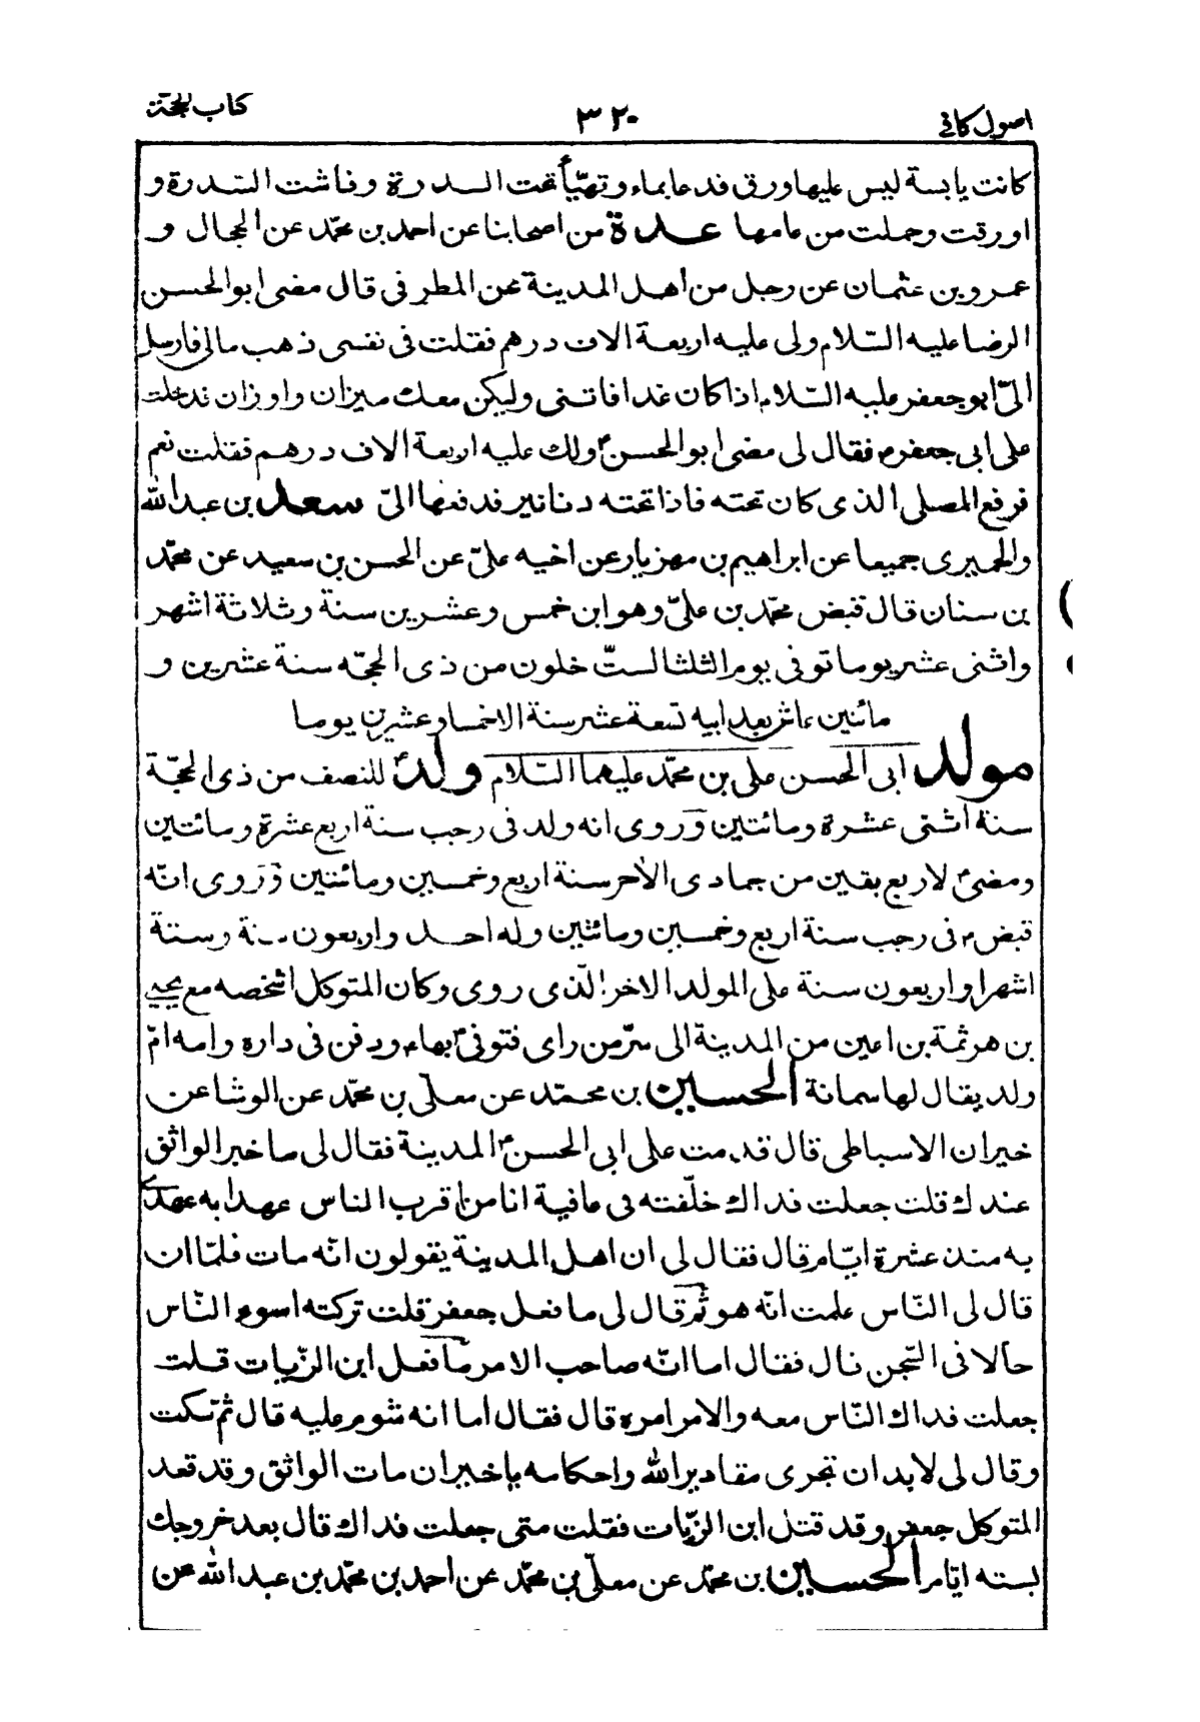 اصول كافى ٣٢٠ كتاب الحجّة
كانت يابسة ليس عليها ورق فدعا بماء وتهيّأ تحت السدرة وفاشت السدرة و
اورقت وحملت من عامها عدة من اصحابنا عن احمد بن محمّد عن الحجال و
عمرو بن عثمان عن رجل من أهل المدينة عن المطرفى قال مضى ابو الحسن
الرضا عليه السّلام ولى عليه اربعة الاف درهم فقلت فى نفسى ذهب مالى فارسل
الىّ ابو جعفر عليه السّلام اذا كان غدا فاتنى وليكن معك ميزان واوزان فدخلت
على ابى جعفرم فقال لى مضى ابو الحسنؑ ولك عليه اربعة الاف درهم فقلت نعم
فرفع المصلى الذى كان تحته فاذا تحته دنانير فدفعها الىّ سعد بن عبد الله
والحميرى جميعا عن ابراهيم بن مهزيار عن اخيه علىّ عن الحسن بن سعيد عن محمّد
بن سنان قال قبض محمّد بن علىّ وهو ابن خمس وعشرين سنة وثلاثة اشهر
واثنى عشر يوما توفى يوم الثلثا لستّ خلون من ذى الحجّه سنة عشرين و
مائتين عاش بعد ابيه تسعة عشر سنة الا خمسا وعشرين يوما
مولد ابى الحسن على بن محمّد عليهما السّلام ولدؑ للنصف من ذى الحجّة
سنة اثنتى عشرة ومائتين وروى انه ولد فى رجب سنة اربع عشرة ومائتين
ومضىؑ لاربع بقين من جمادى الاخر سنة اربع وخمسين ومائتين وروى انّه
قبضم فى رجب سنة اربع وخمسين ومائتين وله احد واربعون سنة وستة
اشهر او اربعون سنة على المولد الاخر الّذى روى وكان المتوكل اشخصه مع يحيى
بن هرثمة بن اعين من المدينة الى سرّ من راى فتوفىؑ بهاء ودفن فى داره وامه امّ
ولد يقال لها سمانة الحسين بن محمّد عن معلّى بن محمّد عن الوشا عن
خيران الاسباطى قال قدمت على ابى الحسنؑ المدينة فقال لى ما خبر الواثق
عندك قلت جعلت فداك خلّفته فى عافية انا من اقرب الناس عهدا به عهدى
به منذ عشرة ايّام قال فقال لى ان اهل المدينة يقولون انّه مات فلمّا ان
قال لى النّاس علمت انّه هو ثم قال لى ما فعل جعفر قلت تركته اسوء النّاس
حالا فى السّجن قال فقال اما انّه صاحب الامر ما فعل ابن الزّيات قلت
جعلت فداك النّاس معه والامر امره قال فقال اما انه شوم عليه قال ثمّ سكت
وقال لى لابد ان تجرى مقادير الله واحكامه يا خيران مات الواثق وقد قعد
المتوكل جعفر وقد قتل ابن الزّيات فقلت متى جعلت فداك قال بعد خروجك
بسته ايّام الحسين بن محمّد عن معلّى بن محمّد عن احمد بن محمّد بن عبد الله عن